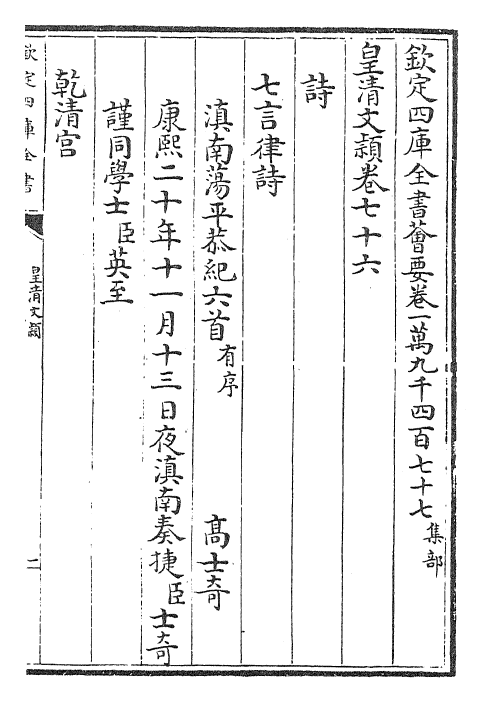 欽定四庫全書薈要卷一萬九千四百七十七集部
皇清文穎卷七十六
詩
七言律詩
滇南蕩平恭紀六首有序 高士奇
康熙二十年十一月十三日夜滇南奏捷臣士奇
謹同學士臣英至
乾清宫
欽定四庫全書
皇清文穎